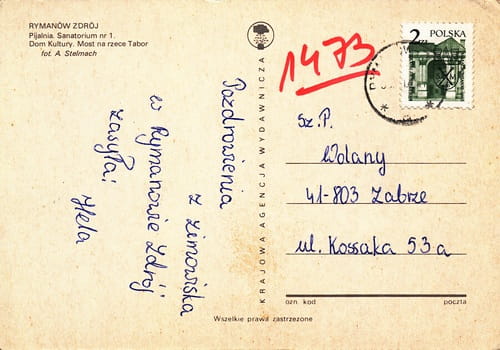 RYMANÓW ZDRÓJ
Pijalnia. Sanatorium nr 1.
Dom Kultury. Most na rzece Tabor
fot. A Stelmach
Pozdrowienia
z zimowiska
w Rymanowie Zdrój
zasyła:
Hela
KRAJOWA AGENCJA WYDAWNICZA
1473
2 zł POLSKA
Sz. P.
Wolany
41-803 Zabrze
ul. Kossaka 53a
ozn. kod poczta
Wszelkie prawa zastrzeżone